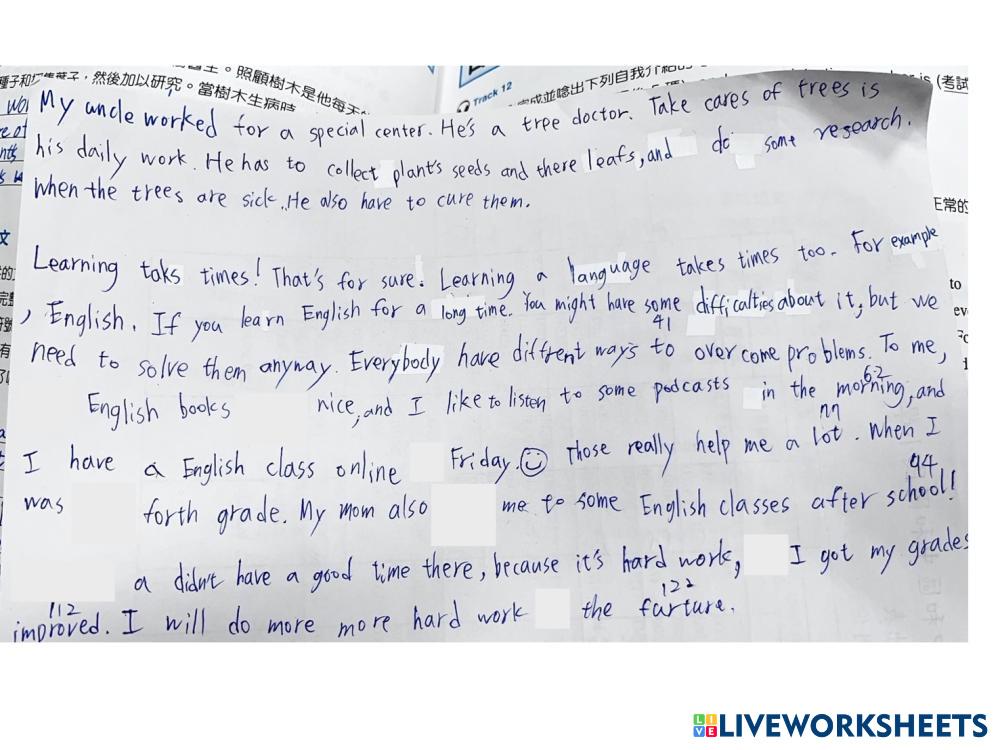 種子和 葉子，然後加以研究。當樹木生病時
照顧樹木是他每天
Track 12
完成並唸出下列自我介紹
(考試
My uncle worked for a special center. He's a tree doctor. Take cares of trees is
his daily work. He has to collect plant's seeds and there leafs, and do some research.
When the trees are sick. He also have to cure them.
正常的
文
Learning taks times! That's for sure. Learning a language takes times too. For example
, English. If you learn English for a long time. You might have some difficalties about it, but we
to
41
need to solve them anyway. Everybody have diffrent ways to overcome problems. To me,
62
English books nice, and I like to listen to some podcasts in the morning, and
77
I have a English class online Friday. Those really help me a lot. When I
94
was forth grade. My mom also me to some English classes after school!
a didn't have a good time there, because it's hard work, I got my grades
112
122
improved. I will do more more hard work the furture.
LIVE LIVEWORKSHEETS